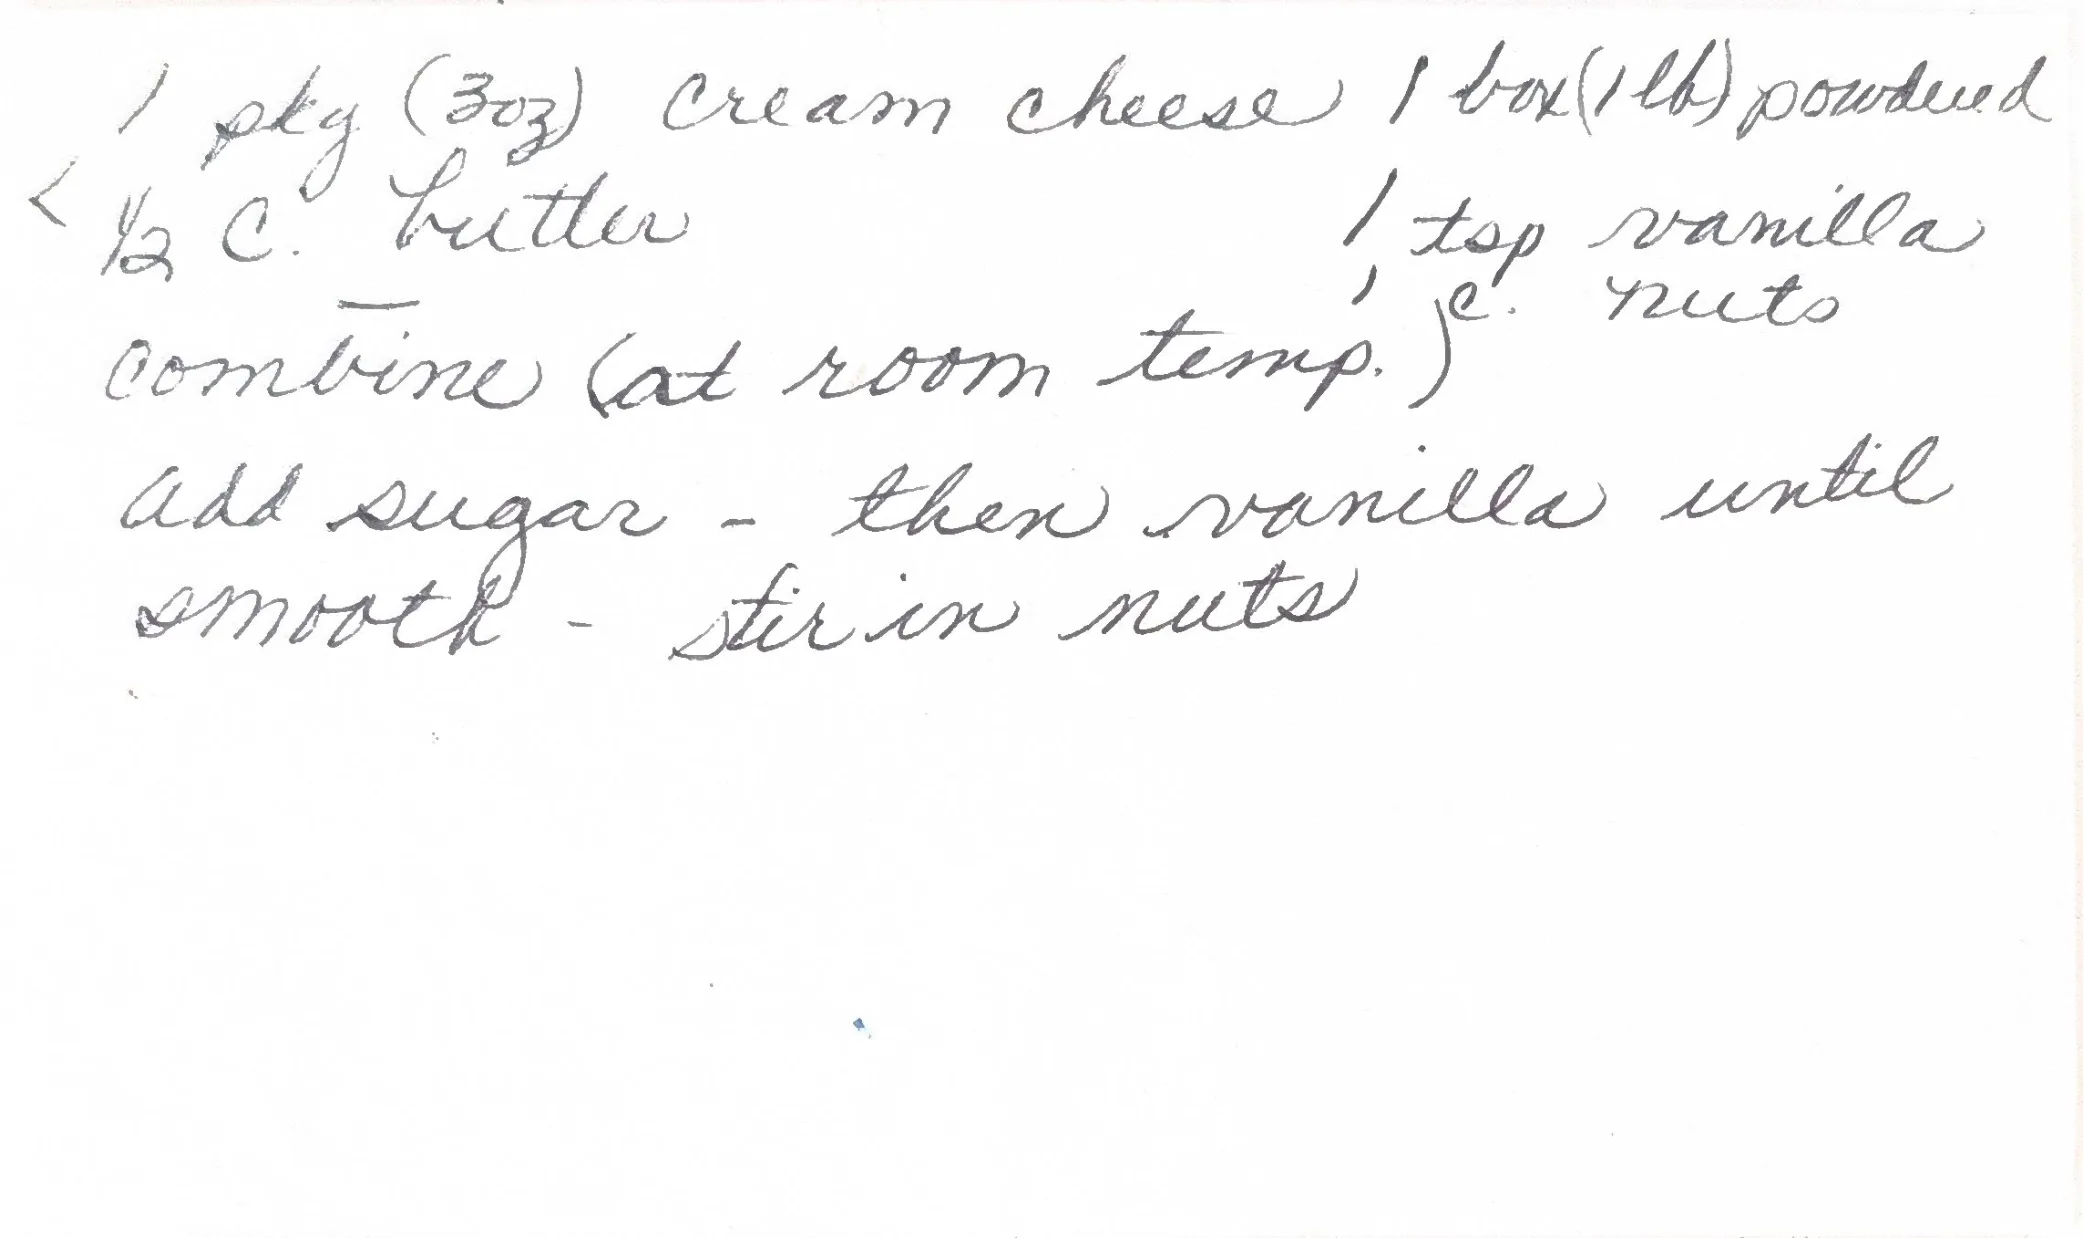 1 pkg (3oz) cream cheese 1 box (1 lb) powdered
< 1/2 c. butter 1 tsp vanilla
1 c. nuts
combine (at room temp.)
add sugar - then vanilla until
smooth - stir in nuts